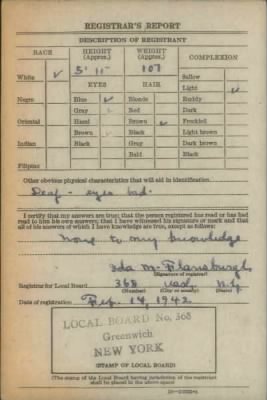 REGISTRAR'S REPORT
DESCRIPTION OF REGISTRANT
RACE HEIGHT (Approx.) WEIGHT (Approx.) COMPLEXION
5' 11" 107 Sallow
White ✓ EYES HAIR Light ✓
Negro Blue ✓ Blonde Ruddy
Gray Red Dark
Oriental Hazel Brown ✓ Freckled
Brown Black Light brown
Indian Black Gray Dark brown
Bald Black
Filipino
Other obvious physical characteristics that will aid in identification
Deaf - eyes bad.
I certify that my answers are true; that the person registered has read or has had
read to him his own answers; that I have witnessed his signature or mark and that
all of his answers of which I have knowledge are true, except as follows:
None to my knowledge
Ida M. Flansburgh
(Signature of registrar)
Registrar for Local Board 368 Wash N.Y.
(Number) (City or county) (State)
Date of registration Feb. 14, 1942
LOCAL BOARD No. 368
Greenwich
NEW YORK
(STAMP OF LOCAL BOARD)
(The stamp of the Local Board having jurisdiction of the registrant
shall be placed in the above space)